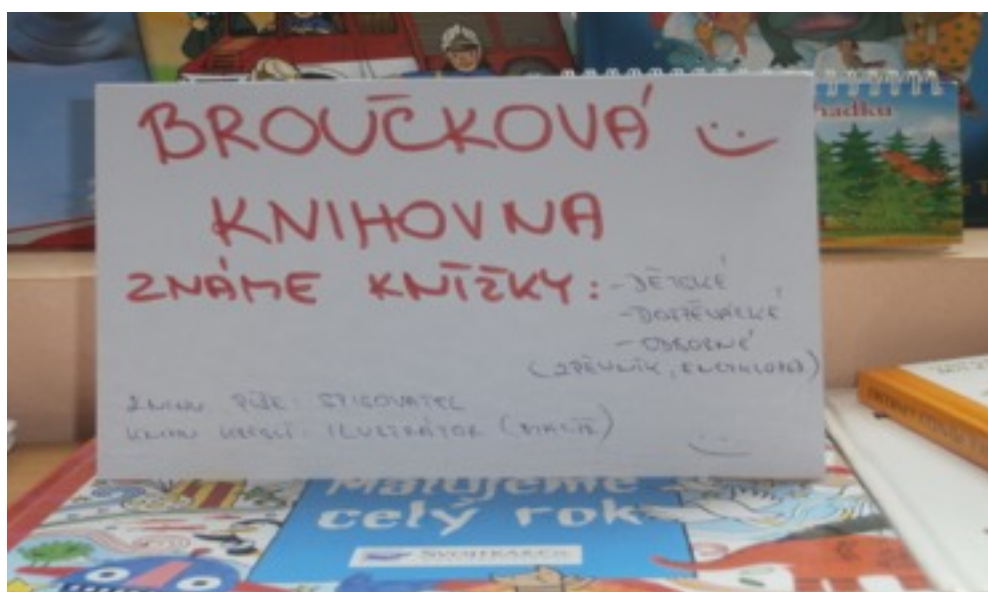 BROUČKOVÁ
KNIHOVNA
ZNÁME KNÍŽKY: - DĚTSKÉ
- DOSPĚLÁCKÉ
- ODBORNÉ
(ZPĚVNÍK, ENCYKLOPED)
KNIHU PÍŠE: SPISOVATEL
KNIHU KRESLÍ: ILUSTRÁTOR (MALÍŘ)
Malujeme
celý rok